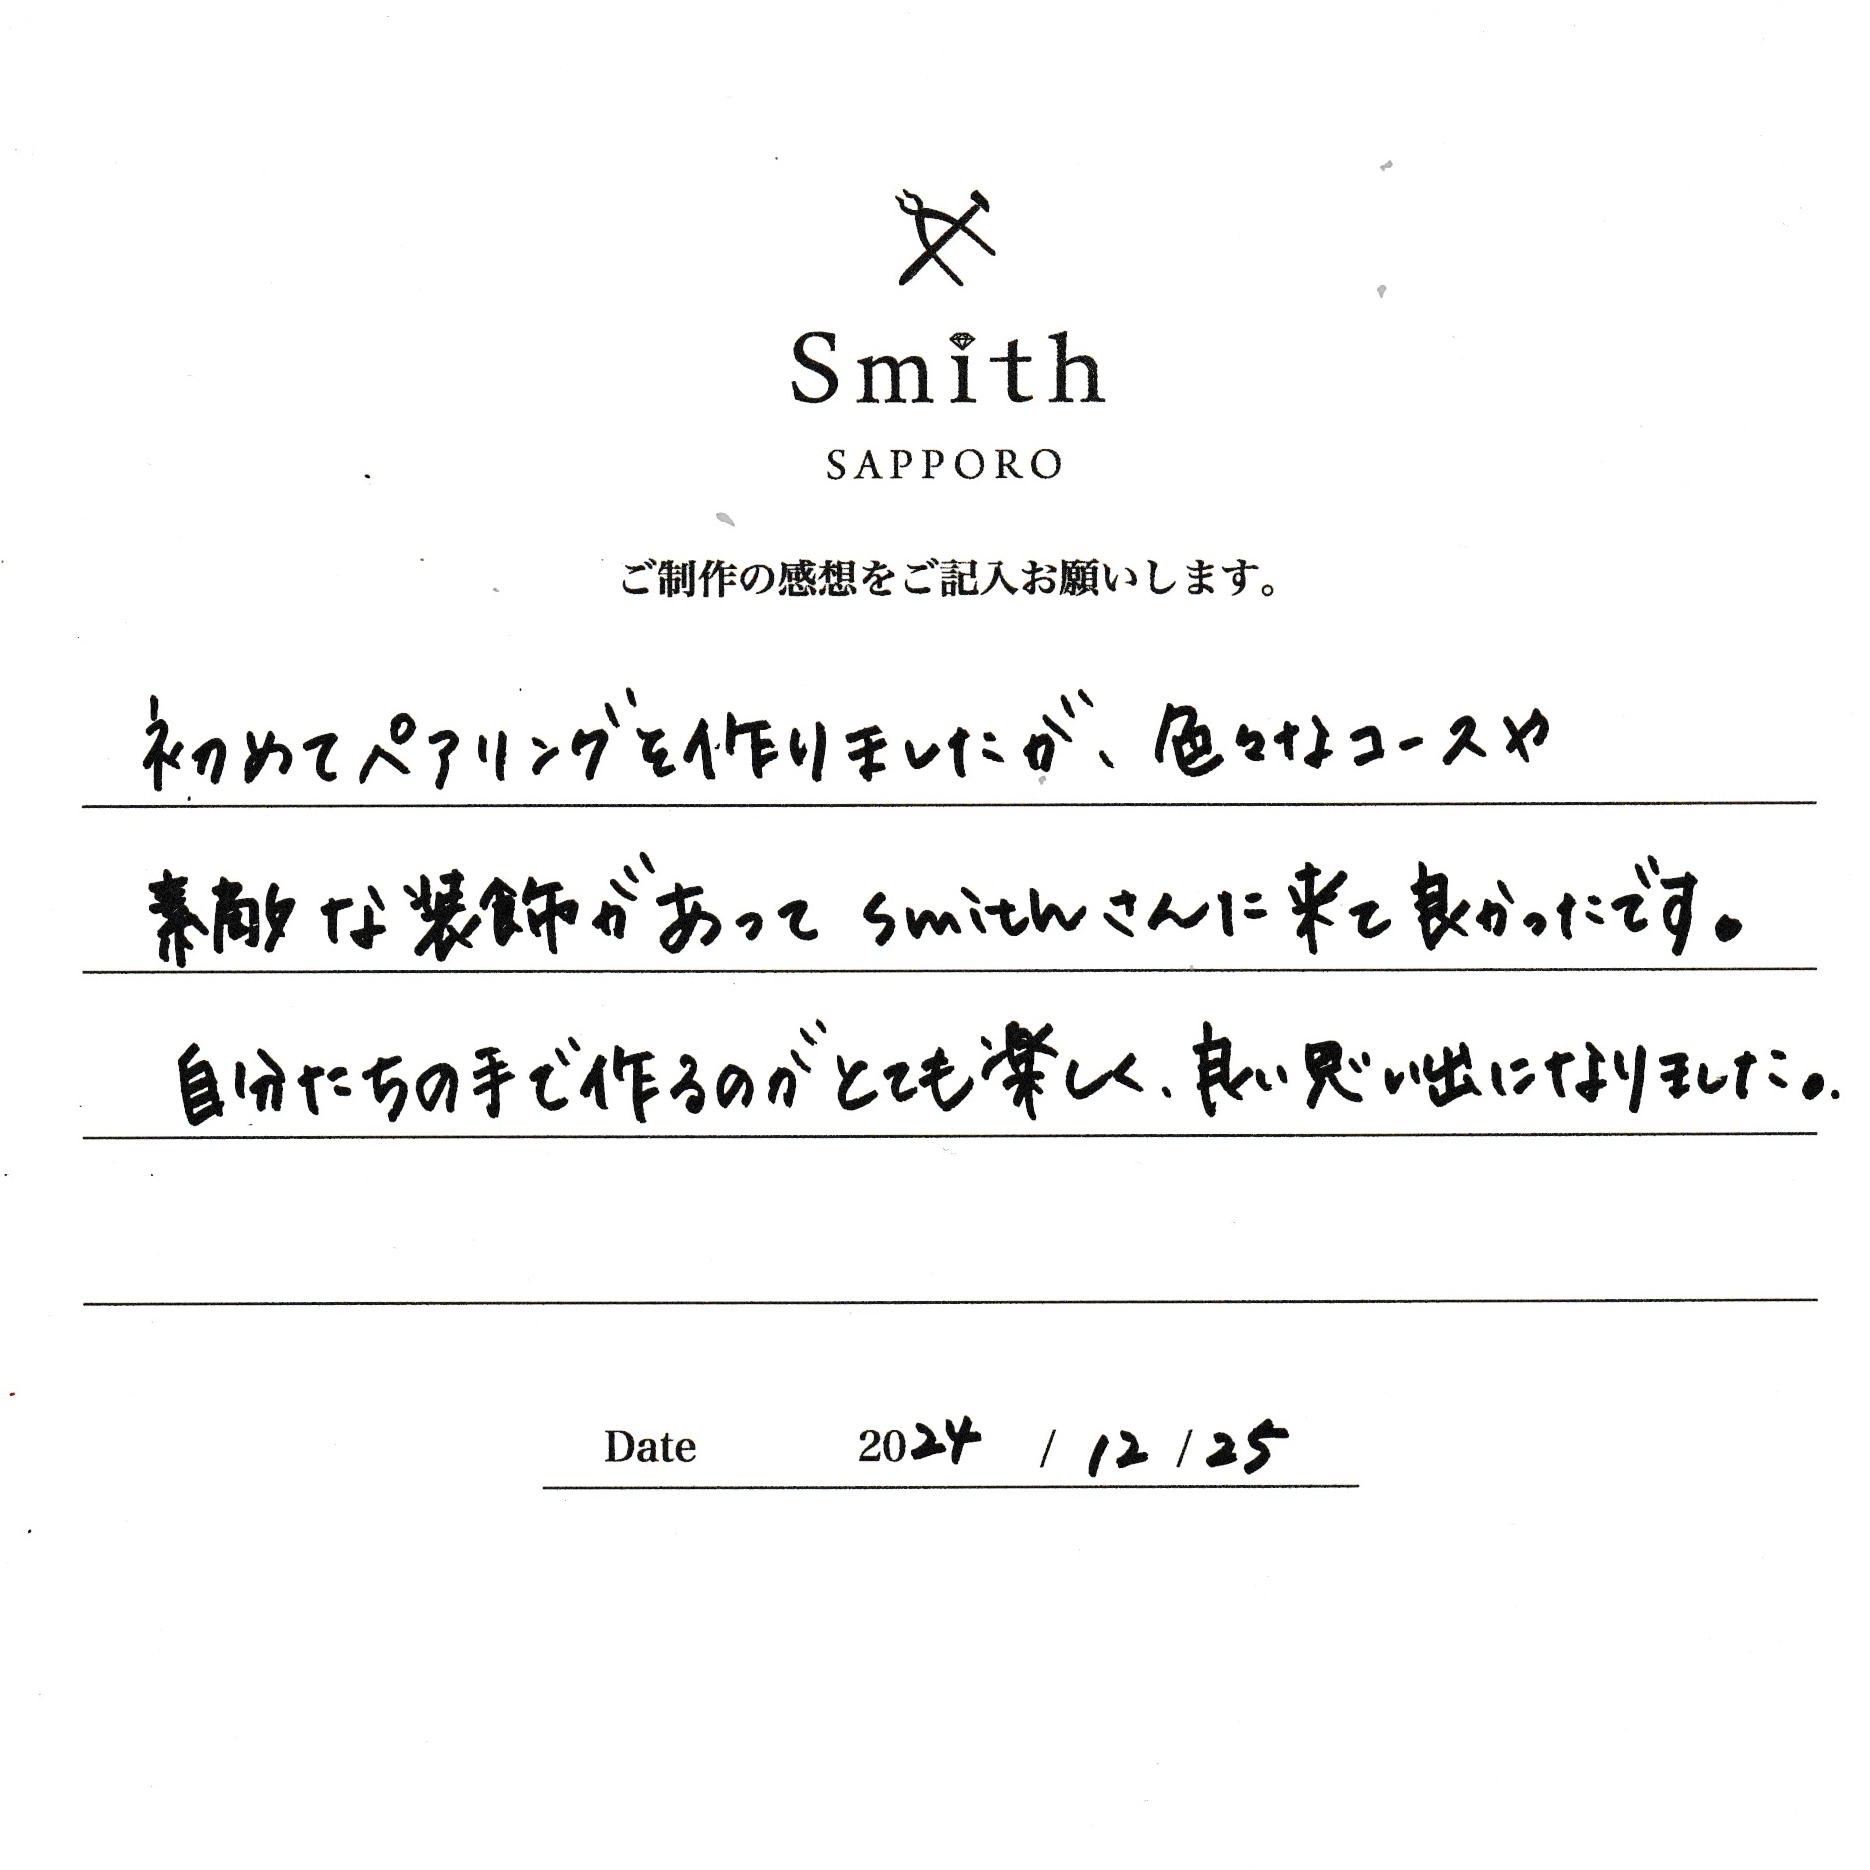 Smith
SAPPORO
ご制作の感想をご記入お願いします。
初めてペアリングを作りましたが、色々なコースや
素敵な装飾があって smithさんに来て良かったです。
自分たちの手で作るのがとても楽しく、良い思い出になりました。
Date 2024 / 12 / 25